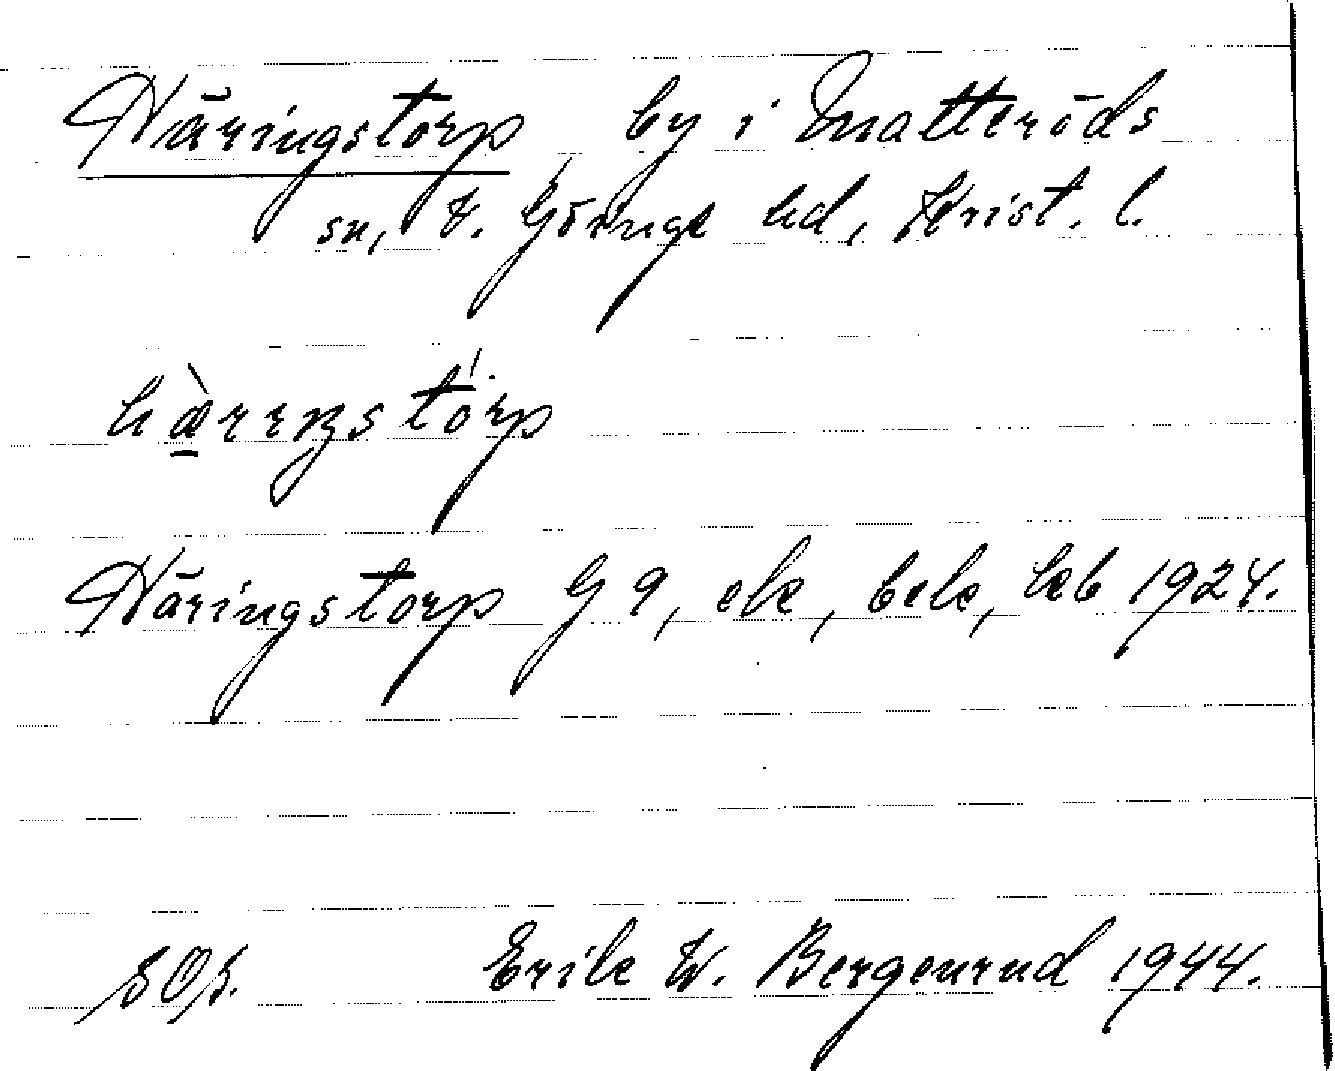 Häringstorp by i Matteröds
sn, V. Göinge hd, Krist. l.
hæ̀rɪŋstórp
Häringstorp G 9, ek, bek, kb 1924.
SOS. Erik W. Bergenrud 1944.